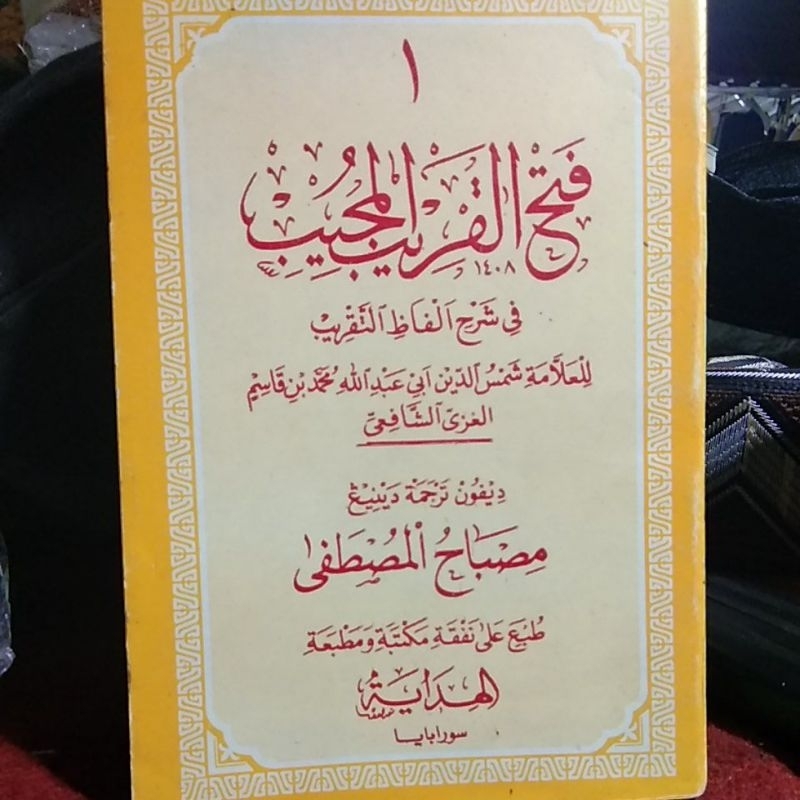 ١
فَتْحُ الْقَرِيْبِ الْمُجِيْبِ
١٤٠٨
فِي شَرْحِ اَلْفَاظِ التَّقْرِيْبِ
لِلْعَلَّامَةِ شَمْسُ الدِّيْنِ اَبِيْ عَبْدِ اللهِ مُحَمَّدْ بِنْ قَاسِمْ
الغزى الشَّافِعِىّ
دِيْفُوْنْ تَرْجَمَهْ دَيْنِيْڠْ
مِصْبَاحُ الْمُصْطَفَى
طُبِعَ عَلَى نَفْقَةِ مَكْتَبَةِ وَمَطْبَعَةِ
الهِدَايَةُ
سورابايا